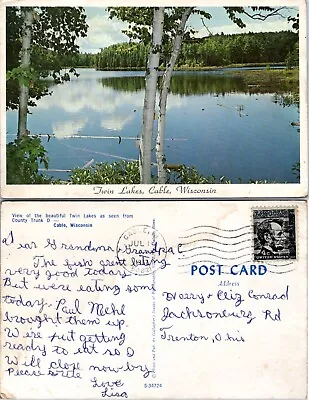 Twin Lakes, Cable, Wisconsin
View of the beautiful Twin Lakes as seen from
County Trunk D —
Cable, Wisconsin
Dear Grandma & Grandpa C
The fish great biting
very good today.
But were eating some
today. Paul Mehl
brought them up
We're just getting
ready to eat so I
Will close now by
Please write
Love
Lisa
JUL 16
POST CARD
Address
Harry & Eliz Conrad
Jacksonburg Rd
Trenton, Ohio
S-34724